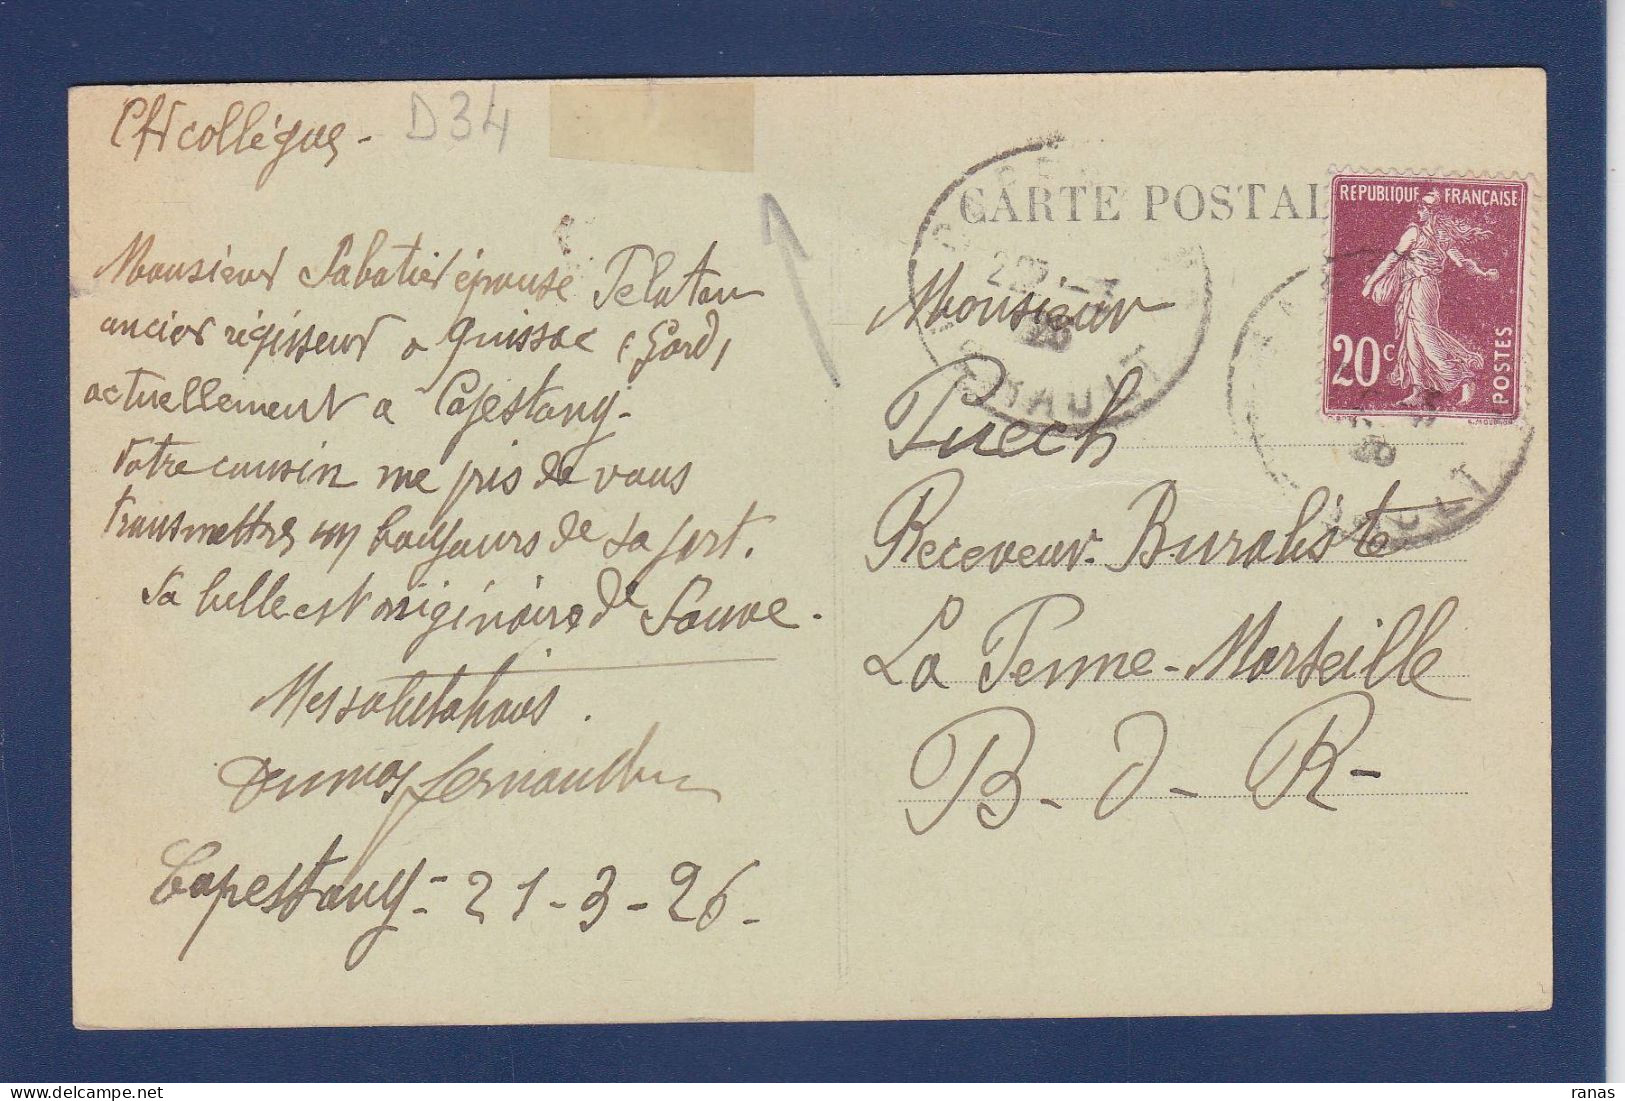 Ch collègue -
D34
Monsieur Sabatier épouse Telatou
ancier régisseur a Quissac (Gard)
actuellement a Capestang -
Votre cousin me pris de vous
transmettre un bonjours de sa part.
Sa belle est originaire de Sauve.
Mes salutations.
Dumas Fernand
Capestang - 21-3-26-
CARTE POSTAL
REPUBLIQUE FRANÇAISE
20c
POSTES
Monsieur
Puech
Receveur-Buraliste
La Penne-Marseille
B-d-R-
HERAULT
ranas